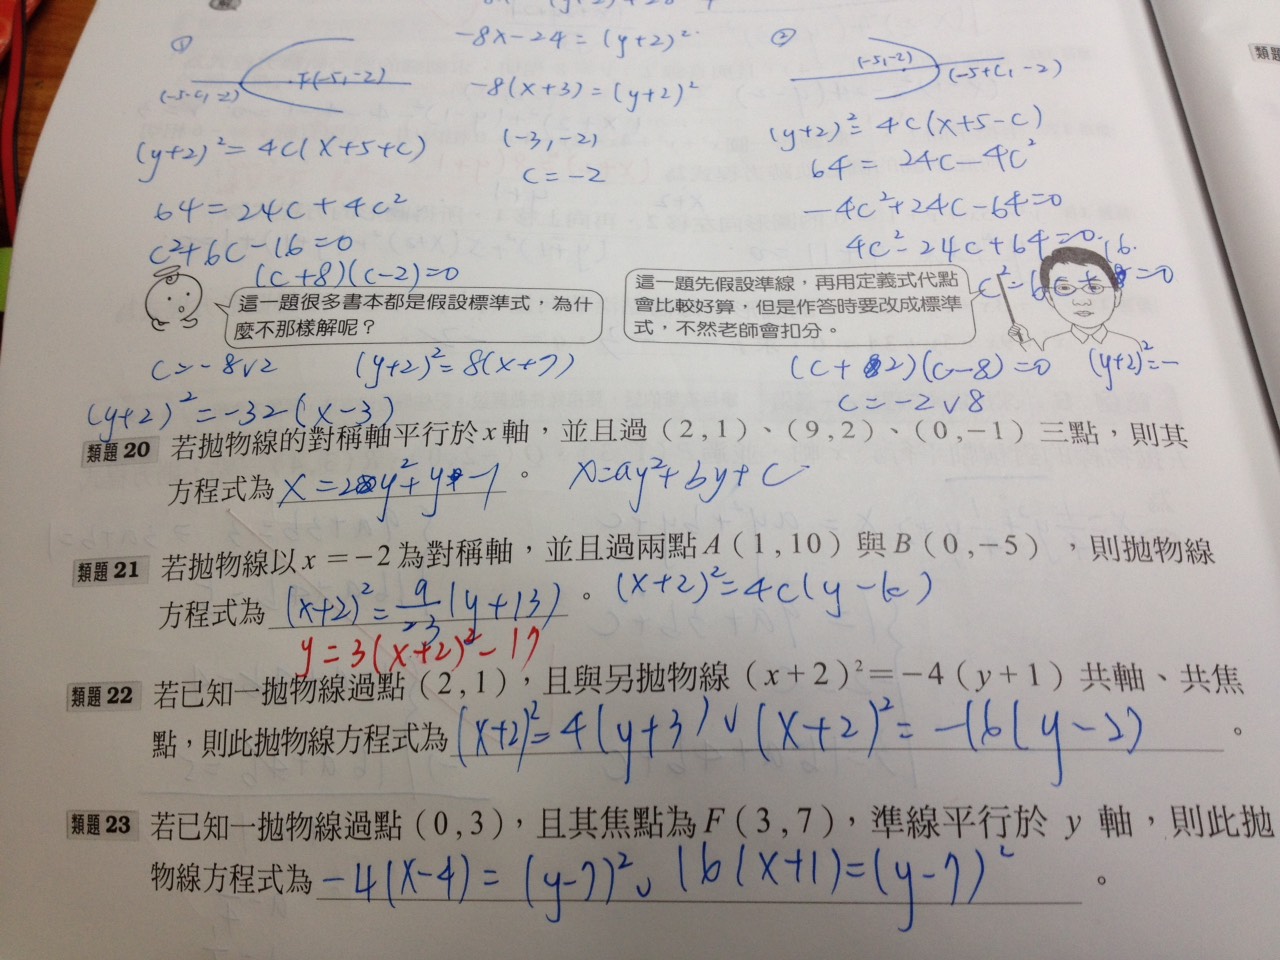 -8x-24=(y+2)²
① ②
F(-5,-2) (-5-c,-2) -8(x+3)=(y+2)² (-5,-2) (-5+c,-2)
(y+2)²=4c(x+5+c) (-3,-2) (y+2)²=4c(x+5-c)
c=-2 64=24c-4c²
64=24c+4c² -4c²+24c-64=0
c²+6c-16=0 4c²-24c+64=0
(c+8)(c-2)=0
這一題很多書本都是假設標準式，為什
麼不那樣解呢？
這一題先假設準線，再用定義式代點
會比較好算，但是作答時要改成標準
式，不然老師會扣分。
c=-8∨2 (y+2)²=8(x+7) (c+2)(c-8)=0 (y+2)²=-
(y+2)²=-32(x-3) c=-2∨8
類題20 若拋物線的對稱軸平行於x軸，並且過（2,1）、（9,2）、（0,-1）三點，則其
方程式為 x=2y²+y-1 。 x=ay²+by+c
類題21 若拋物線以x=-2為對稱軸，並且過兩點A（1,10）與B（0,-5），則拋物線
方程式為 (x+2)²=9/23(y+13) 。 (x+2)²=4c(y-k)
y=3(x+2)²-17
類題22 若已知一拋物線過點（2,1），且與另拋物線（x+2）²=-4（y+1）共軸、共焦
點，則此拋物線方程式為 (x+2)²=4(y+3)∨(x+2)²=-16(y-2) 。
類題23 若已知一拋物線過點（0,3），且其焦點為F（3,7），準線平行於 y 軸，則此拋
物線方程式為 -4(x-4)=(y-7)²∨16(x+1)=(y-7)² 。
類題